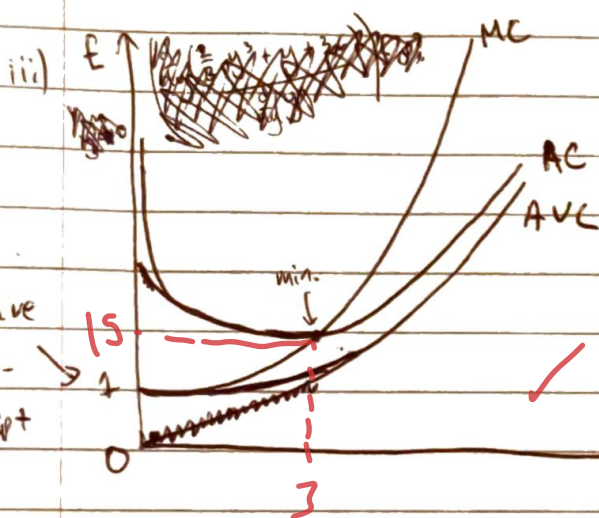 iii)
£
MC
AC
AVC
min.
ve
15
1
0
3